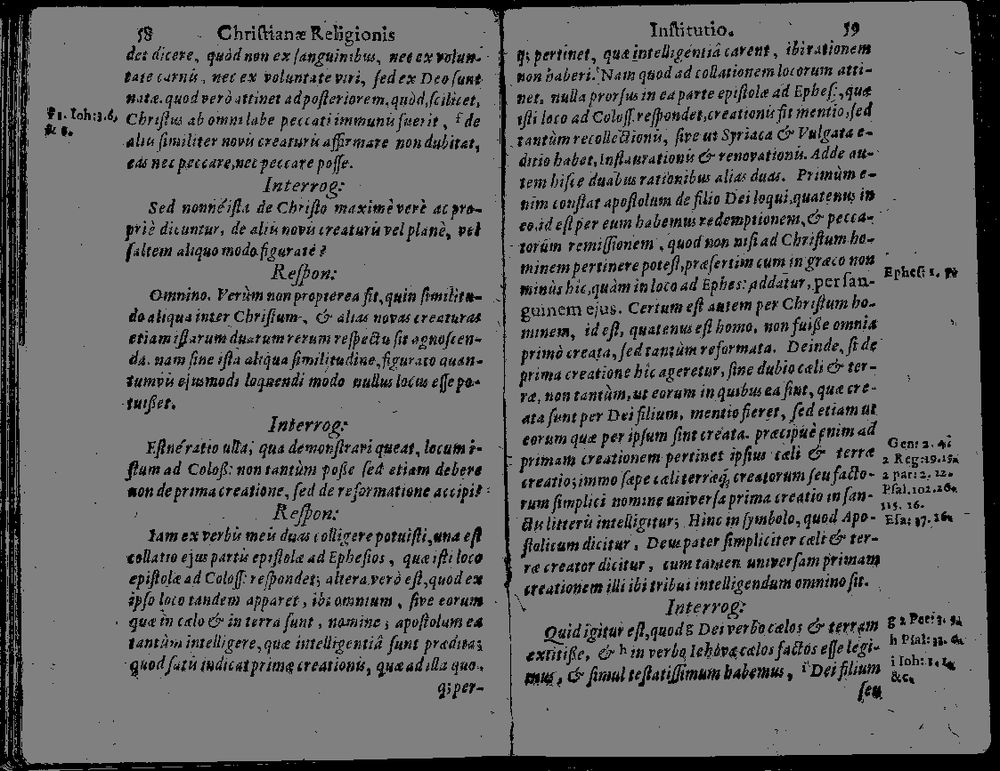 58 Christianæ Religionis
dei dicere, quòd non ex sanguinibus, nec ex volun-
tate carnis, nec ex voluntate viri, sed ex Deo sunt
natæ. quod verò attinet ad posteriorem, quòd, scilicet,
Christus ab omni labe peccati immunis fuerit, f de
f 1. Ioh: 3. 6,
& 8.
aliis similiter novis creaturis affirmare non dubitat,
eas nec peccare, nec peccare posse.
Interrog:
Sed nonnè ista de Christo maximè verè ac pro-
priè dicuntur, de aliis novis creaturis vel planè, vel
saltem aliquo modo figuratè?
Respon:
Omnino. Verùm non propterea fit, quin similitu-
do aliqua inter Christum, & alias novas creaturas
etiam istarum duarum rerum respectu sit agnoscen-
da. nam sine ista aliqua similitudine, figurato quan-
tumvis ejusmodi loquendi modo nullus locus esse po-
tuisset.
Interrog:
Estnè ratio ulla, qua demonstrari queat, locum i-
stum ad Coloss: non tantùm posse sed etiam debere
non de prima creatione, sed de reformatione accipi?
Respon:
Iam ex verbis meis duas colligere potuisti, una est
collatio ejus partis epistolæ ad Ephesios, quæ isti loco
epistolæ ad Coloss: respondet; altera verò est, quod ex
ipso loco tandem apparet, ibi omnium, sive eorum
quæ in cælo & in terra sunt, nomine; apostolum ea
tantùm intelligere, quæ intelligentiâ sunt prædita;
quod satis indicat primæ creationis, quæ ad illa quo-
q; per-
Institutio. 59
q; pertinet, quæ intelligentiâ carent, ibi rationem
non haberi. Nam quod ad collationem locorum atti-
net, nulla prorsus in ea parte epistolæ ad Ephes:, quæ
isti loco ad Coloss. respondet, creationis fit mentio, sed
tantùm recollectionis, sive ut Syriaca & Vulgata e-
ditio habet, Instaurationis & renovationis. Adde au-
tem hisce duabus rationibus alias duas. Primùm e-
nim constat apostolum de filio Dei loqui, quatenus in
eo, id est per eum habemus redemptionem, & pecca-
torum remissionem, quod non nisi ad Christum ho-
minem pertinere potest, præsertim cum in græco non
minùs hîc, quàm in loco ad Ephes: addatur, per san-
Ephesi 1. 7.
guinem ejus. Certum est autem per Christum ho-
minem, id est, quatenus est homo, non fuisse omnia
primò creata, sed tantùm reformata. Deinde, si de
prima creatione hîc ageretur, sine dubio cæli & ter-
ræ, non tantùm, ut eorum in quibus ea sint, quæ cre-
ata sunt per Dei filium, mentio fieret, sed etiam ut
eorum quæ per ipsum sint creata. præcipuè enim ad
primam creationem pertinet ipsius cæli & terræ
creatio; immo sæpe cæli terræq; creatorum seu facto-
rum simplici nomine universa prima creatio in san-
ctis litteris intelligitur; Hinc in symbolo, quod Apo-
stolicum dicitur, Deus pater simpliciter cæli & ter-
ræ creator dicitur, cum tamen universam primam
creationem illi ibi tribui intelligendum omnino sit.
Gen: 2. 4.
2 Reg: 19. 15.
2 par: 2. 12.
Psal. 102. 26.
115. 16.
Esa: 37. 16.
Interrog:
Quid igitur est, quod g Dei verbo cælos & terram
extitisse, & h in verbo Iehovæ cælos factos esse legi-
mus, & simul testatissimum habemus, i Dei filium
seu
g 2 Pet: 3. 5.
h Psal: 33. 6.
i Ioh: 1. 1.
&c.